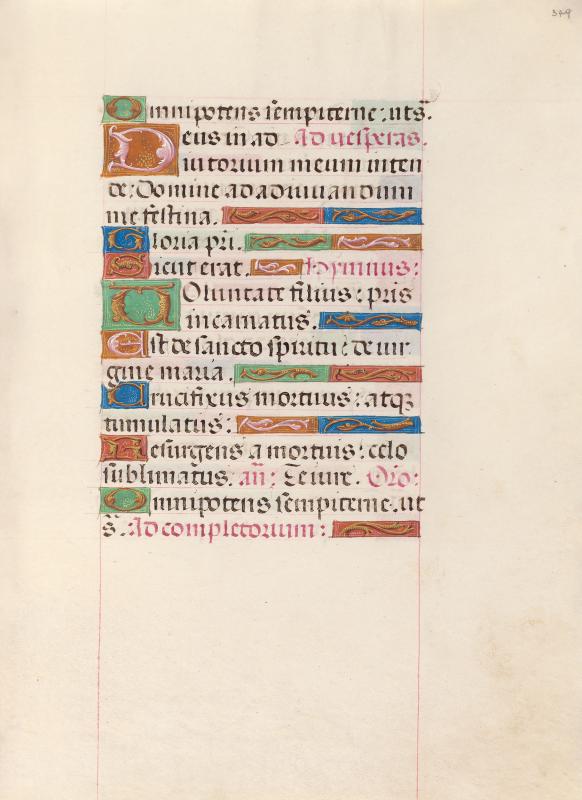 349
Omnipotens sempiterne: ut s̄.
Deus in ad Ad vesperas.
iutorium meum inten
de: Domine ad adiuvandum
me festina.
Gloria pri.
Sicut erat. Hymnus:
Voluntate filius: pris
incarnatus.
Est de sancto spiritu: de vir
gine maria.
Crucifixus mortuus: atqꝫ
tumulatus:
Resurgens a mortuis: celo
sublimatus. an̄: Te iure. Oro:
Omnipotens sempiterne. ut
s̄. Ad completorium: